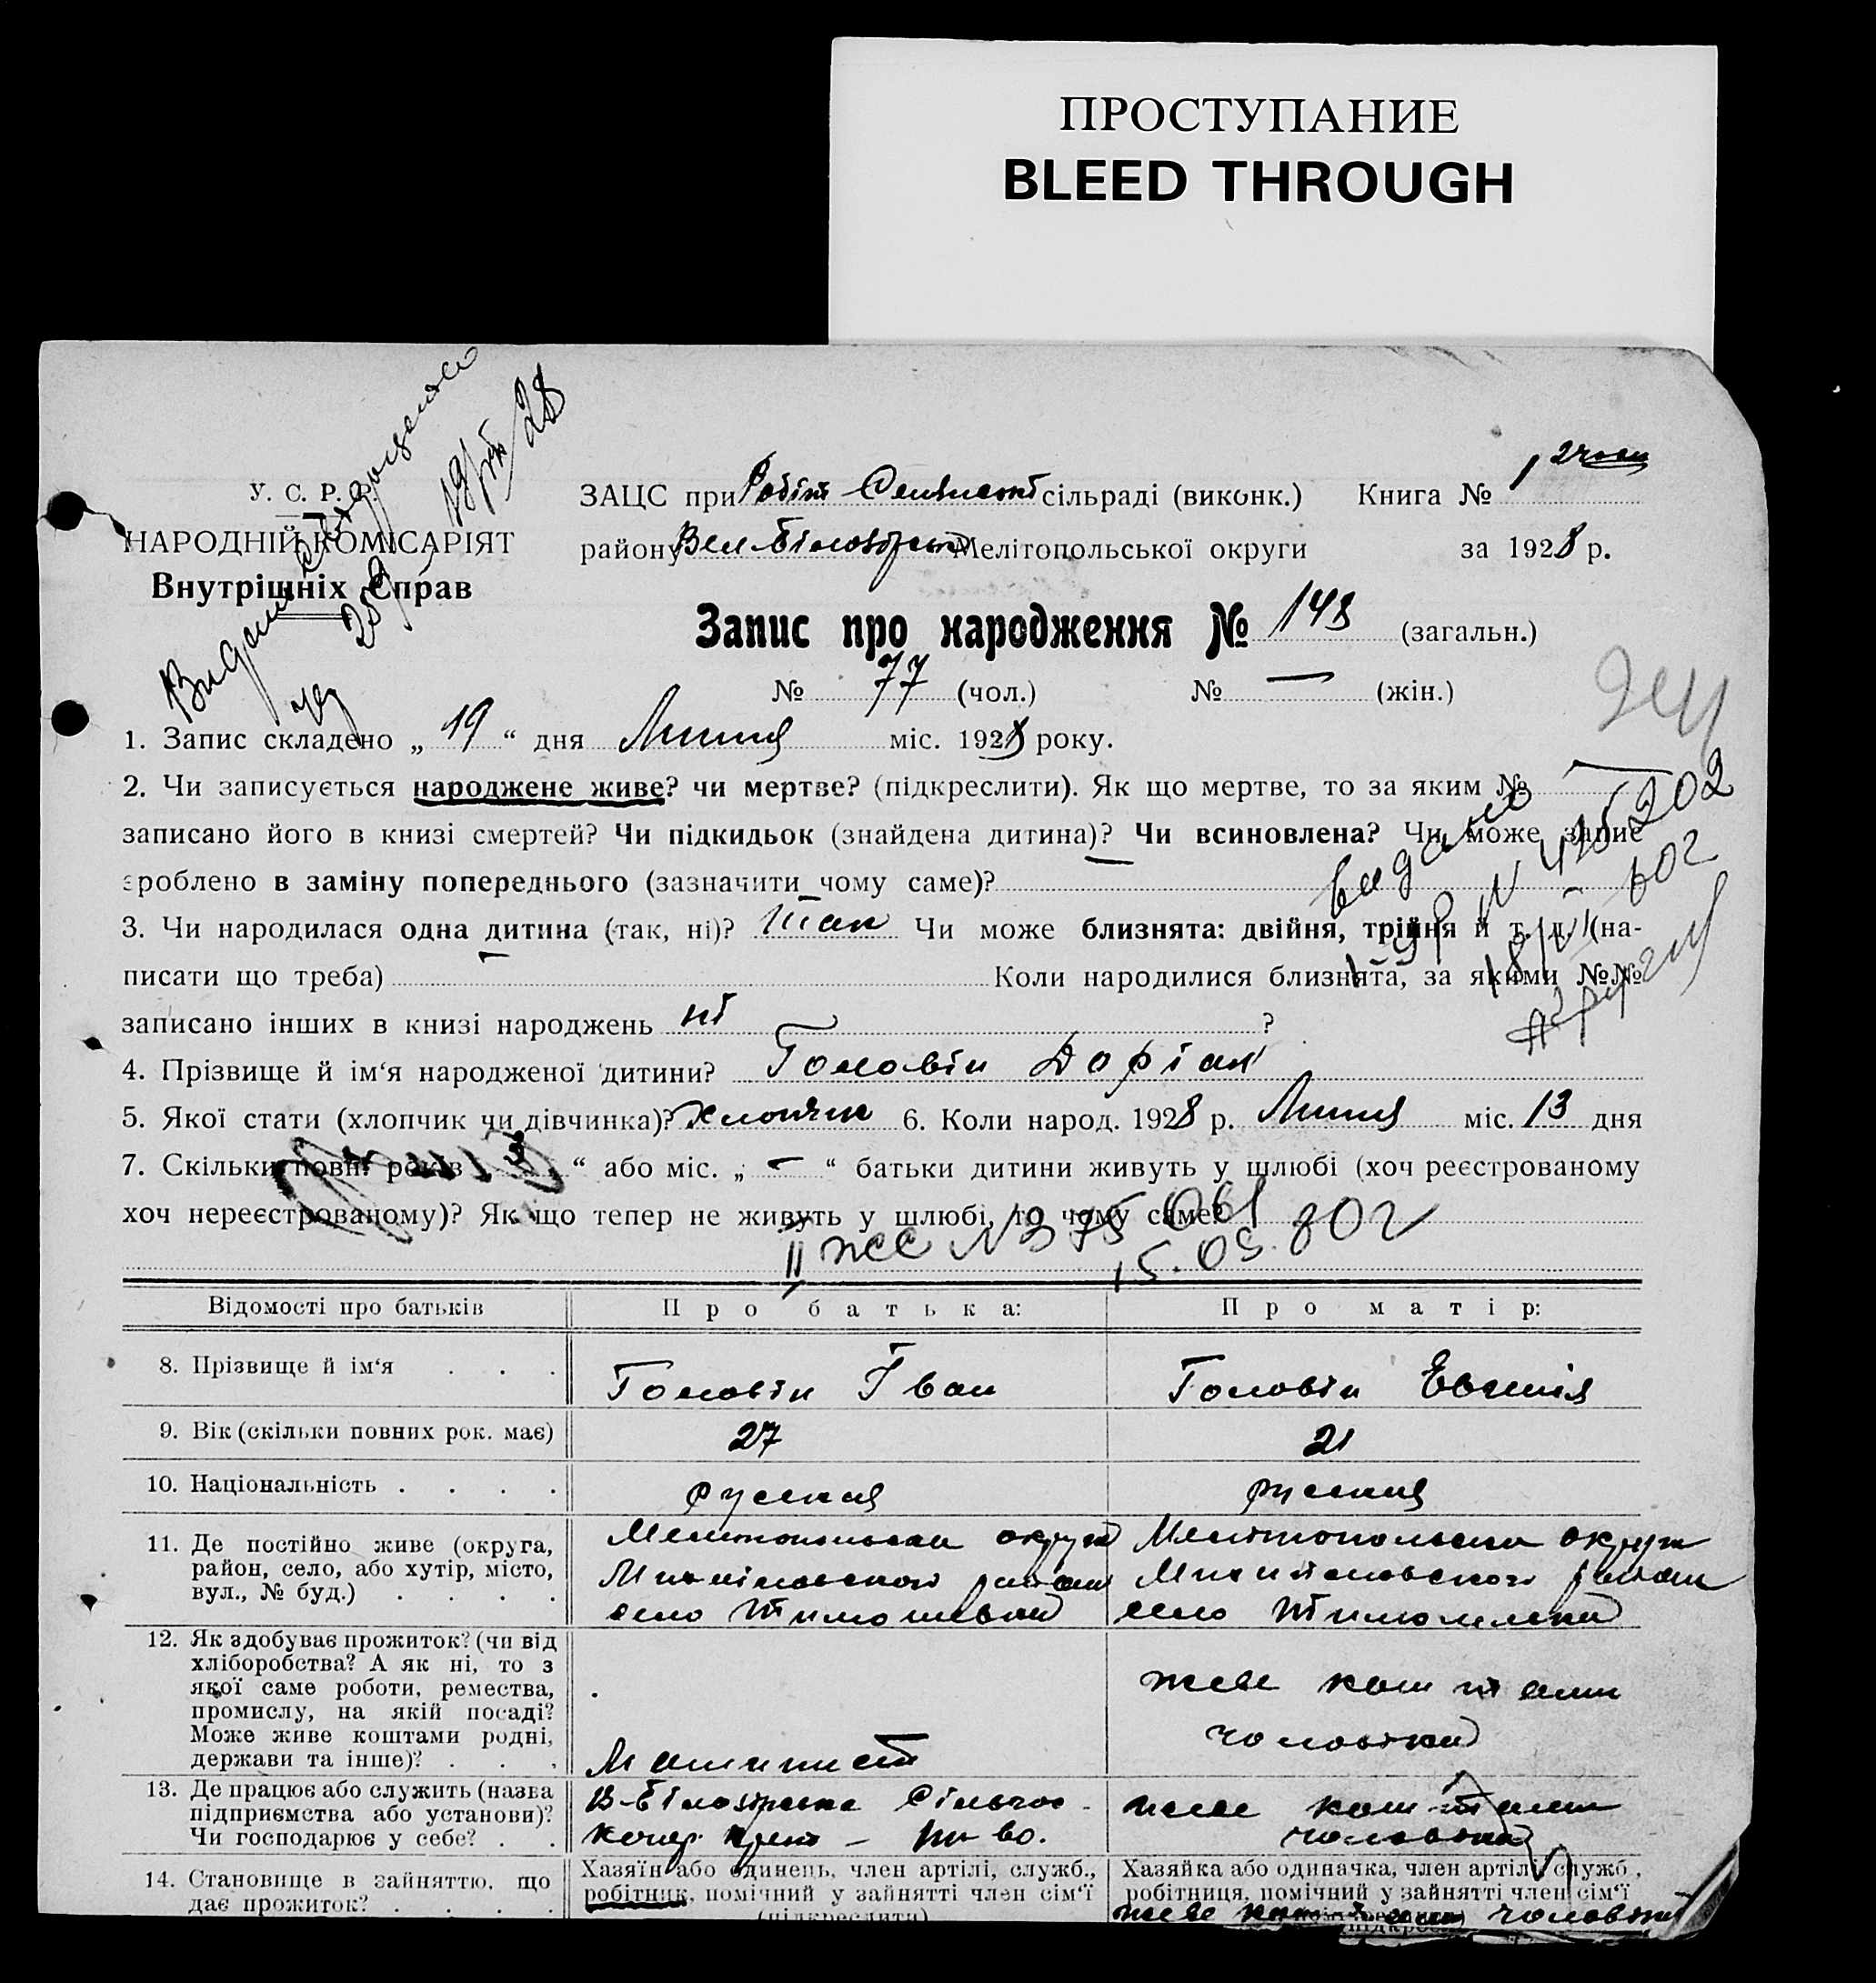 ПРОСТУПАНИЕ
BLEED THROUGH
У. С. Р. Р.
НАРОДНІЙ КОМІСАРІЯТ
Внутрішніх Справ
ЗАЦС при сільраді (виконк.) Книга № 1
району Мелітопольської округи за 1928 р.
Запис про народження № 148 (загальн.)
№ 77 (чол.) № — (жін.)
1. Запис складено „ 19 “ дня Липня міс. 1928 року.
2. Чи записується народжене живе? чи мертве? (підкреслити). Як що мертве, то за яким № —
записано його в книзі смертей? Чи підкидьок (знайдена дитина)? Чи всиновлена? Чи може запис
зроблено в заміну попереднього (зазначити чому саме)?
3. Чи народилася одна дитина (так, ні)? так Чи може близнята: двійня, трійня й т. д. (на-
писати що треба) Коли народилися близнята, за якими №№
записано інших в книзі народжень ні ?
4. Прізвище й ім‘я народженої дитини? Головін Доріан
5. Якої стати (хлопчик чи дівчинка)? Хлопчик 6. Коли народ. 1928 р. Липня міс. 13 дня
7. Скільки повн. років 3 “ або міс. „ — “ батьки дитини живуть у шлюбі (хоч реєстрованому
хоч нереєстрованому)? Як що тепер не живуть у шлюбі, то чому саме?
Видано
15.03.80г
Відомості про батьків Про батька: Про матір:
8. Прізвище й ім‘я Головін Іван Головін Евгенія
9. Вік (скільки повних рок. має) 27 21
10. Національність русская русская
11. Де постійно живе (округа,
район, село, або хутір, місто,
вул., № буд.)
Мелитопольска округа
Михайловского района
село Тимошевка
Мелітопольска округа
Михайловского района
село Тимошевка
12. Як здобуває прожиток? (чи від
хліборобства? А як ні, то з
якої саме роботи, ремества,
промислу, на якій посаді?
Може живе коштами родні,
держави та інше)?
Машинист
живе коштами
чоловіка
13. Де працює або служить (назва
підприємства або установи)?
Чи господарює у себе?
В-Білозірське
живе коштами
чоловіка
14. Становище в зайняттю, що
дає прожиток?
Хазяїн або одинець, член артілі, служб.,
робітник, помічний у зайнятті член сім‘ї
(підкреслити)
Хазяйка або одиначка, член артілі, служб.,
робітниця, помічний у зайнятті член сім‘ї
живе коштами чоловіка